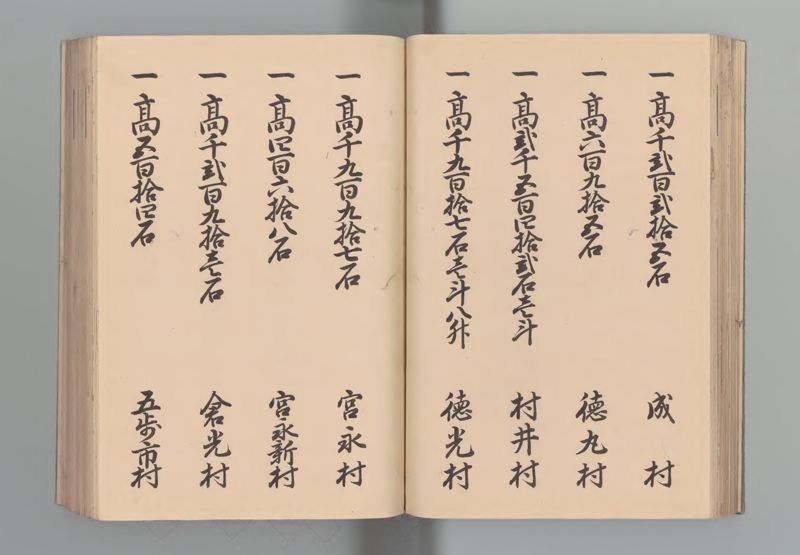 一 髙千弐百弐拾五石 成村
一 髙六百九拾五石 徳丸村
一 髙弐千五百四拾弐石壱斗 村井村
一 髙千九百拾七石壱斗八舛 徳光村
一 髙千九百九拾七石 宮永村
一 髙四百六拾八石 宮永新村
一 髙千弐百九拾壱石 倉光村
一 髙五百拾四石 五歩市村